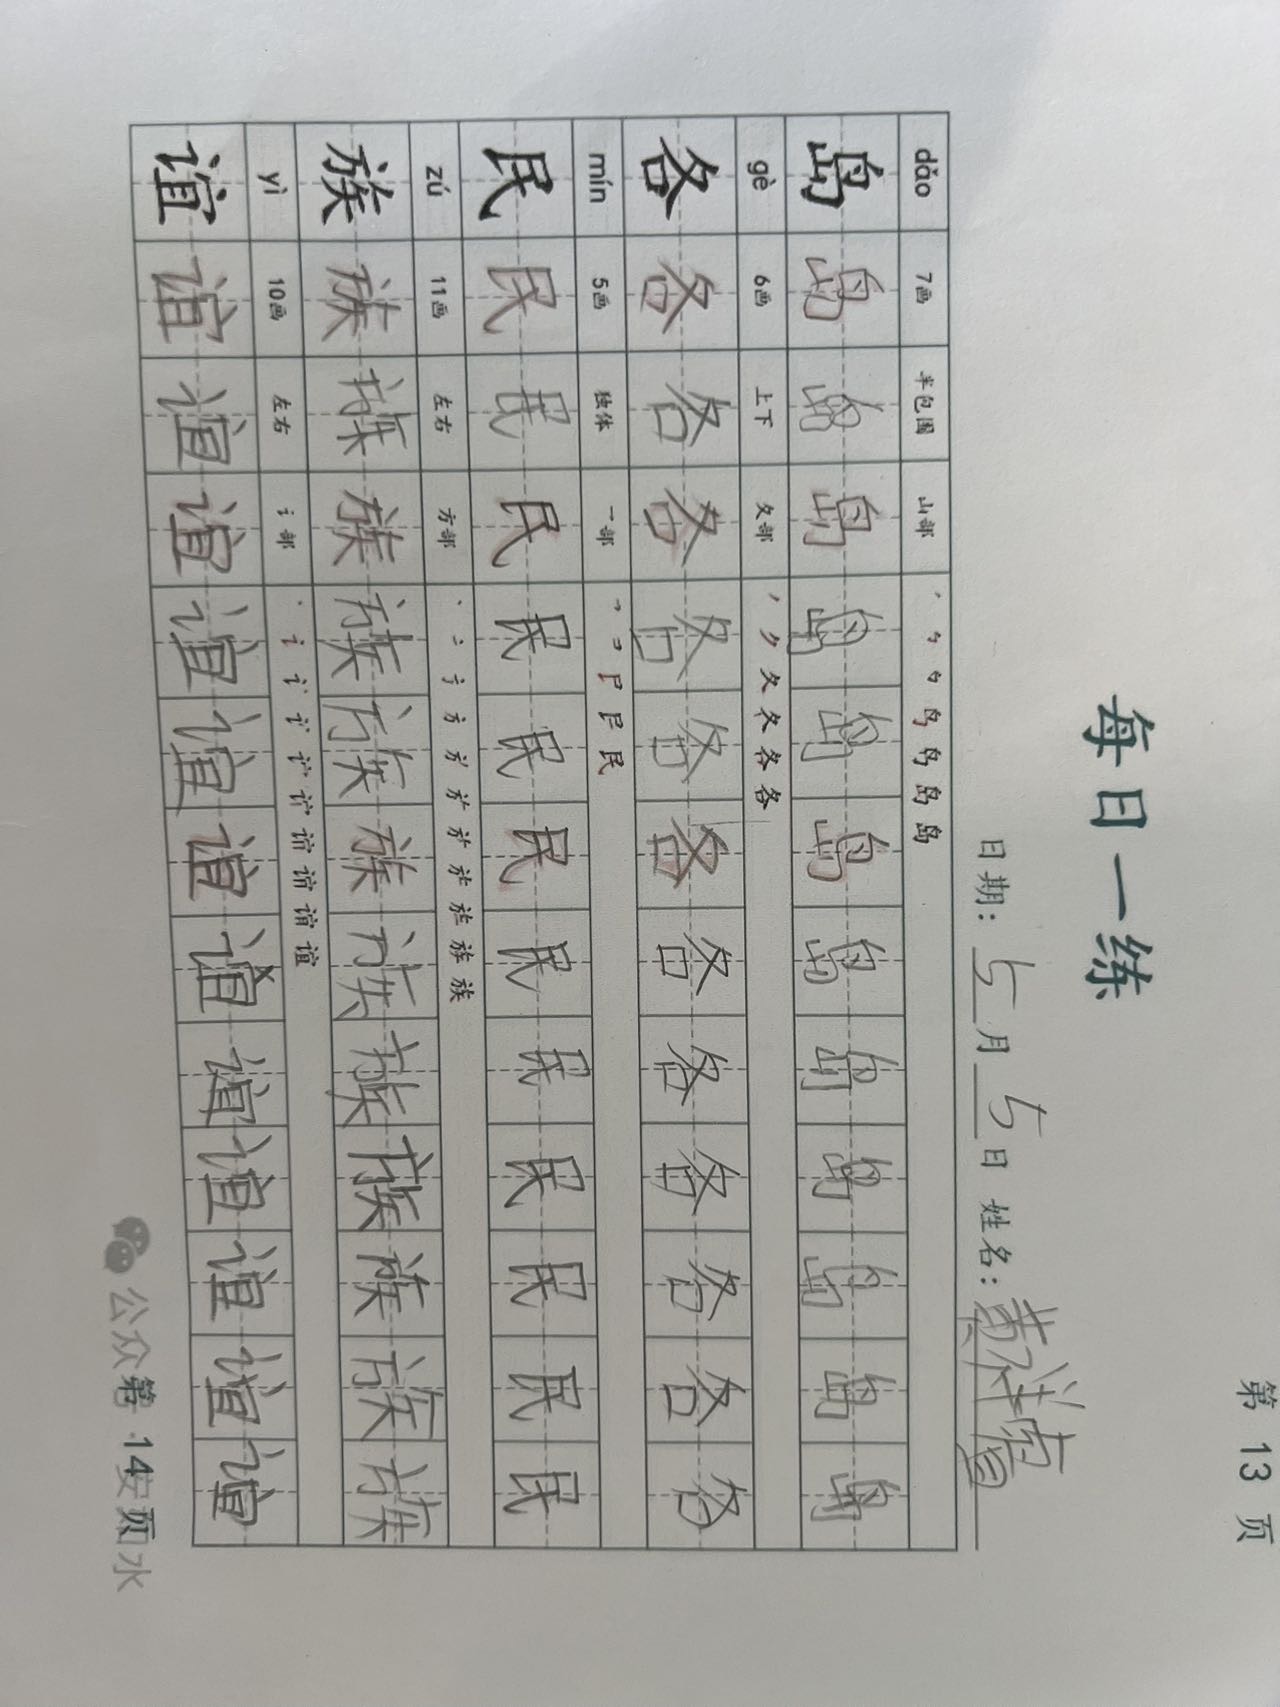 第 13 页
每日一练
日期: 5 月 5 日 姓名: 黄
dǎo 7画 半包围 山部 岛 岛
岛 岛 岛 岛 岛 岛 岛 岛 岛 岛 岛 岛 岛
gè 6画 上下 夂部 丿 ク 夂 冬 各 各
各 各 各 各 各 各 各 各 各 各 各 各 各
mín 5画 独体 乛部 乛 コ 民
民 民 民 民 民 民 民 民 民 民 民 民 民
zú 11画 左右 方部 丶 亠 方 方 族 族
族 族 族 族 族 族 族 族 族 族 族 族 族
yì 10画 左右 讠部 丶 讠 谊 谊
谊 谊 谊 谊 谊 谊 谊 谊 谊 谊 谊 谊 谊
第 14 页
公众 安 水